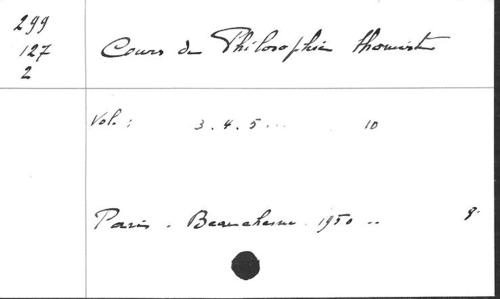 299
127
2
Cours de Philosophie thomiste
Vol. : 3. 4. 5 ... 10
Paris. Beauchesne. 1950 .. 8°